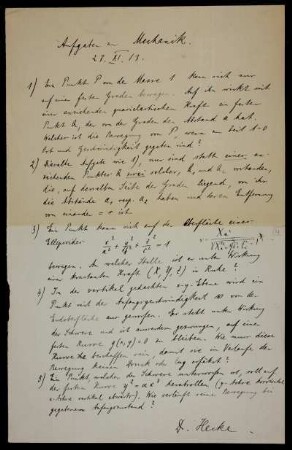 Aufgaben zur Mechanik.
28. XI. 13.
1) Ein Punkt P von der Masse 1 kann sich nur
auf einer festen Geraden bewegen. Auf ihn wirkt mit
einer anziehenden Kraft ein fester
Punkt A, der von der Geraden den Abstand a hat.
Welches ist die Bewegung von P, wenn zur Zeit t=0
Ort und Geschwindigkeit gegeben sind?
2) Dieselbe Aufgabe wie 1), nur sind statt eines an-
ziehenden Punktes A zwei solcher, A₁ und A₂ vorhanden,
die, auf derselben Seite der Geraden liegend, von ihr
die Abstände a₁ resp. a₂ haben und deren Entfernung
von einander = c ist.
3) Ein Punkt kann sich auf der Oberfläche eines
Ellipsoides x²/a² + y²/b² + z²/c² = 1
bewegen. An welcher Stelle ist er unter Wirkung
einer konstanten Kraft (X, Y, Z) in Ruhe?
4) In der vertikal gedachten xy-Ebene wird ein
Punkt mit der Anfangsgeschwindigkeit von der
Erdoberfläche aus geworfen. Er steht unter Wirkung
der Schwere und ist gezwungen, auf einer
festen Kurve y(x,y)=0 zu bleiben. Wie muss diese
Kurve beschaffen sein, damit sie im Verlaufe der
Bewegung keinen Druck oder Zug erfährt?
5) Ein Punkt, welcher der Schwere unterworfen ist, soll auf
der festen Kurve y² = αx³ herabrollen
Wie verläuft seine Bewegung bei
gegebenem Anfangszustand?
Dr. Hecke